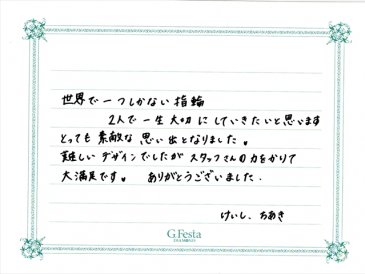 世界で一つしかない指輪
2人で一生大切にしていきたいと思います
とっても素敵な思い出となりました。
難しいデザインでしたがスタッフさんの力をかりて
大満足です。 ありがとうございました.
けいし、ちあき
G.Festa
DIAMONDS